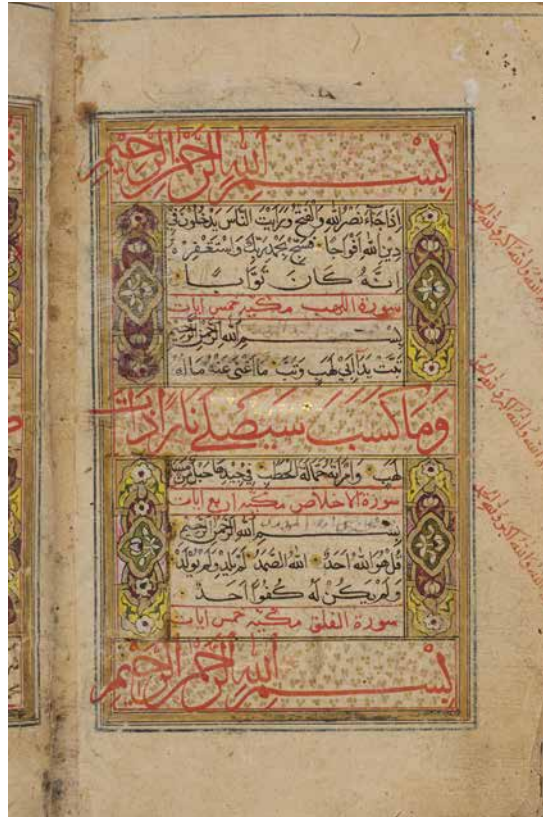 بِسْمِ اللهِ الرَّحْمٰنِ الرَّحِيْمِ
اِذَا جَاءَ نَصْرُ اللهِ وَالْفَتْحُ وَرَاَيْتَ النَّاسَ يَدْخُلُوْنَ فِيْ
دِيْنِ اللهِ اَفْوَاجًا فَسَبِّحْ بِحَمْدِ رَبِّكَ وَاسْتَغْفِرْهُ
اِنَّهُ كَانَ تَوَّابًا
سورة اللهب مكية خمس ايات
بِسْمِ اللهِ الرَّحْمٰنِ الرَّحِيْمِ
تَبَّتْ يَدَا اَبِيْ لَهَبٍ وَتَبَّ مَا اَغْنٰى عَنْهُ مَالُهُ
وَمَا كَسَبَ سَيَصْلٰى نَارًا ذَاتَ
لَهَبٍ وَامْرَاَتُهُ حَمَّالَةَ الْحَطَبِ فِيْ جِيْدِهَا حَبْلٌ مِنْ مَسَدٍ
سورة الاخلاص مكية اربع ايات
بِسْمِ اللهِ الرَّحْمٰنِ الرَّحِيْمِ
قُلْ هُوَ اللهُ اَحَدٌ اللهُ الصَّمَدُ لَمْ يَلِدْ وَلَمْ يُوْلَدْ
وَلَمْ يَكُنْ لَهُ كُفُوًا اَحَدٌ
سورة الفلق مكية خمس ايات
بِسْمِ اللهِ الرَّحْمٰنِ الرَّحِيْمِ
والله اكبر ولله الحمد
والله اكبر ولله الحمد
والله اكبر ولله الحمد